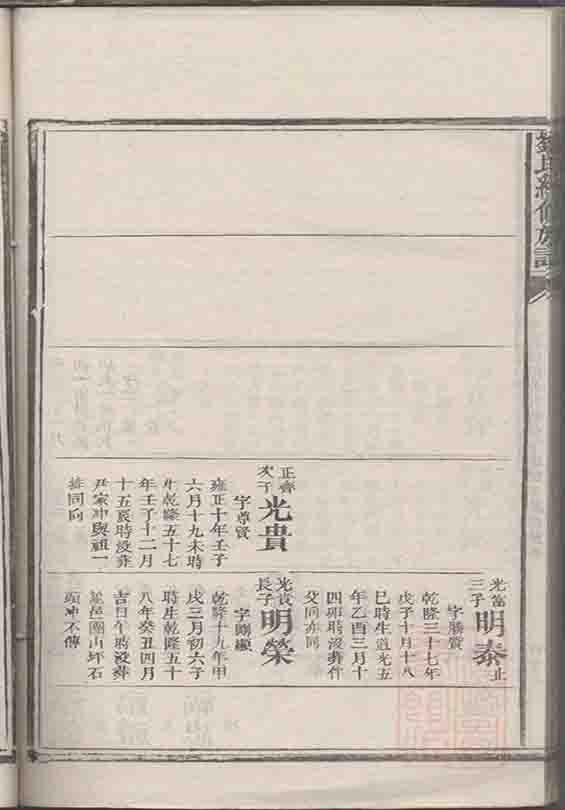 氏續修族譜
正齊
次子
光貴
字尊賢
雍正十年壬子
六月十九未時
生乾隆五十七
年壬子十二月
十五辰時没葬
尹家冲與祖一
排同向
光富
三子
明泰
止
字勝賢
乾隆三十七年
戊子十月十八
巳時生道光五
年乙酉三月十
四卯時没葬件
父同亦同
光貴
長子
明榮
乾隆十九年甲
戌三月初六子
時生乾隆五十
八年癸丑四月
吉日午時没葬
邑團山坪石
頭冲不傳